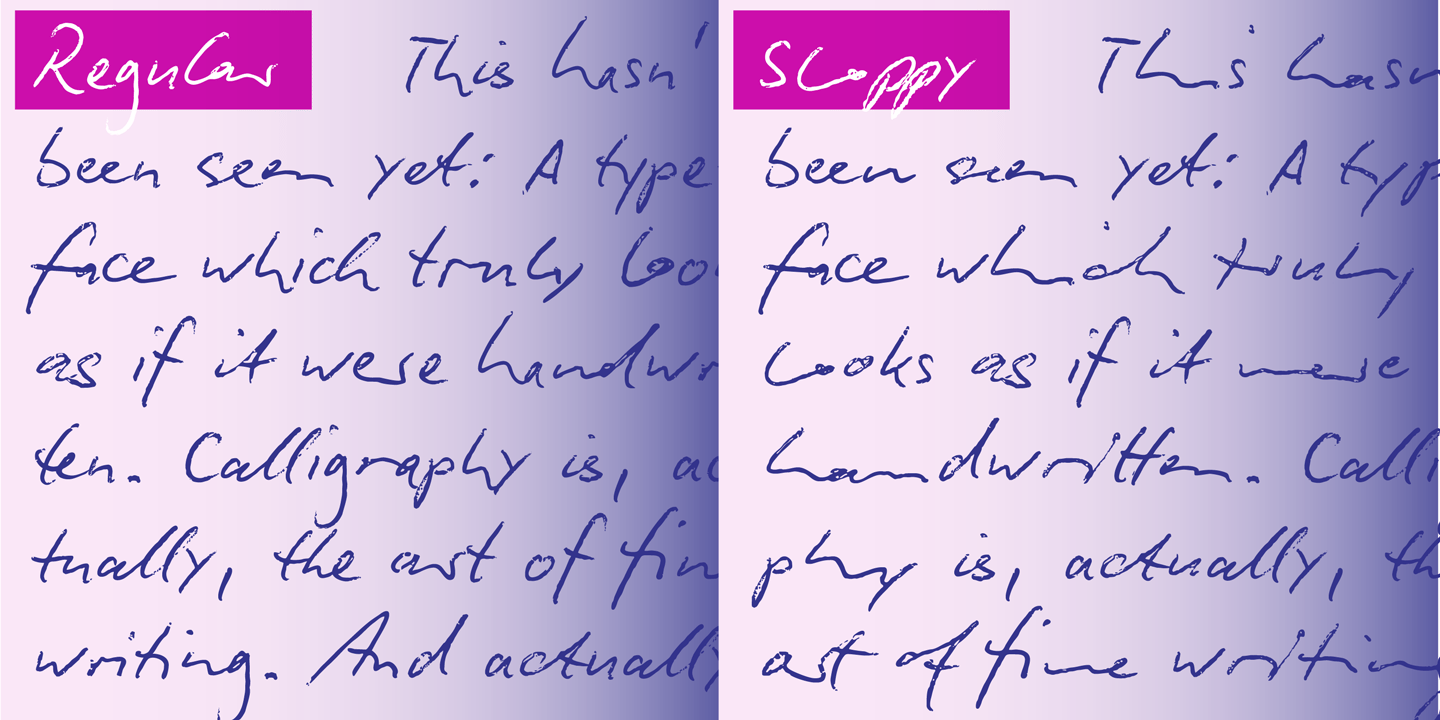 Regular This hasn'
been seen yet: A type
face which truly loo
as if it were handwr
ten. Calligraphy is, ac
tually, the art of fin
writing. And actually
Sloppy This hasn
been seen yet: A typ
face which truly
looks as if it were
handwritten. Calli
phy is, actually, th
art of fine writing